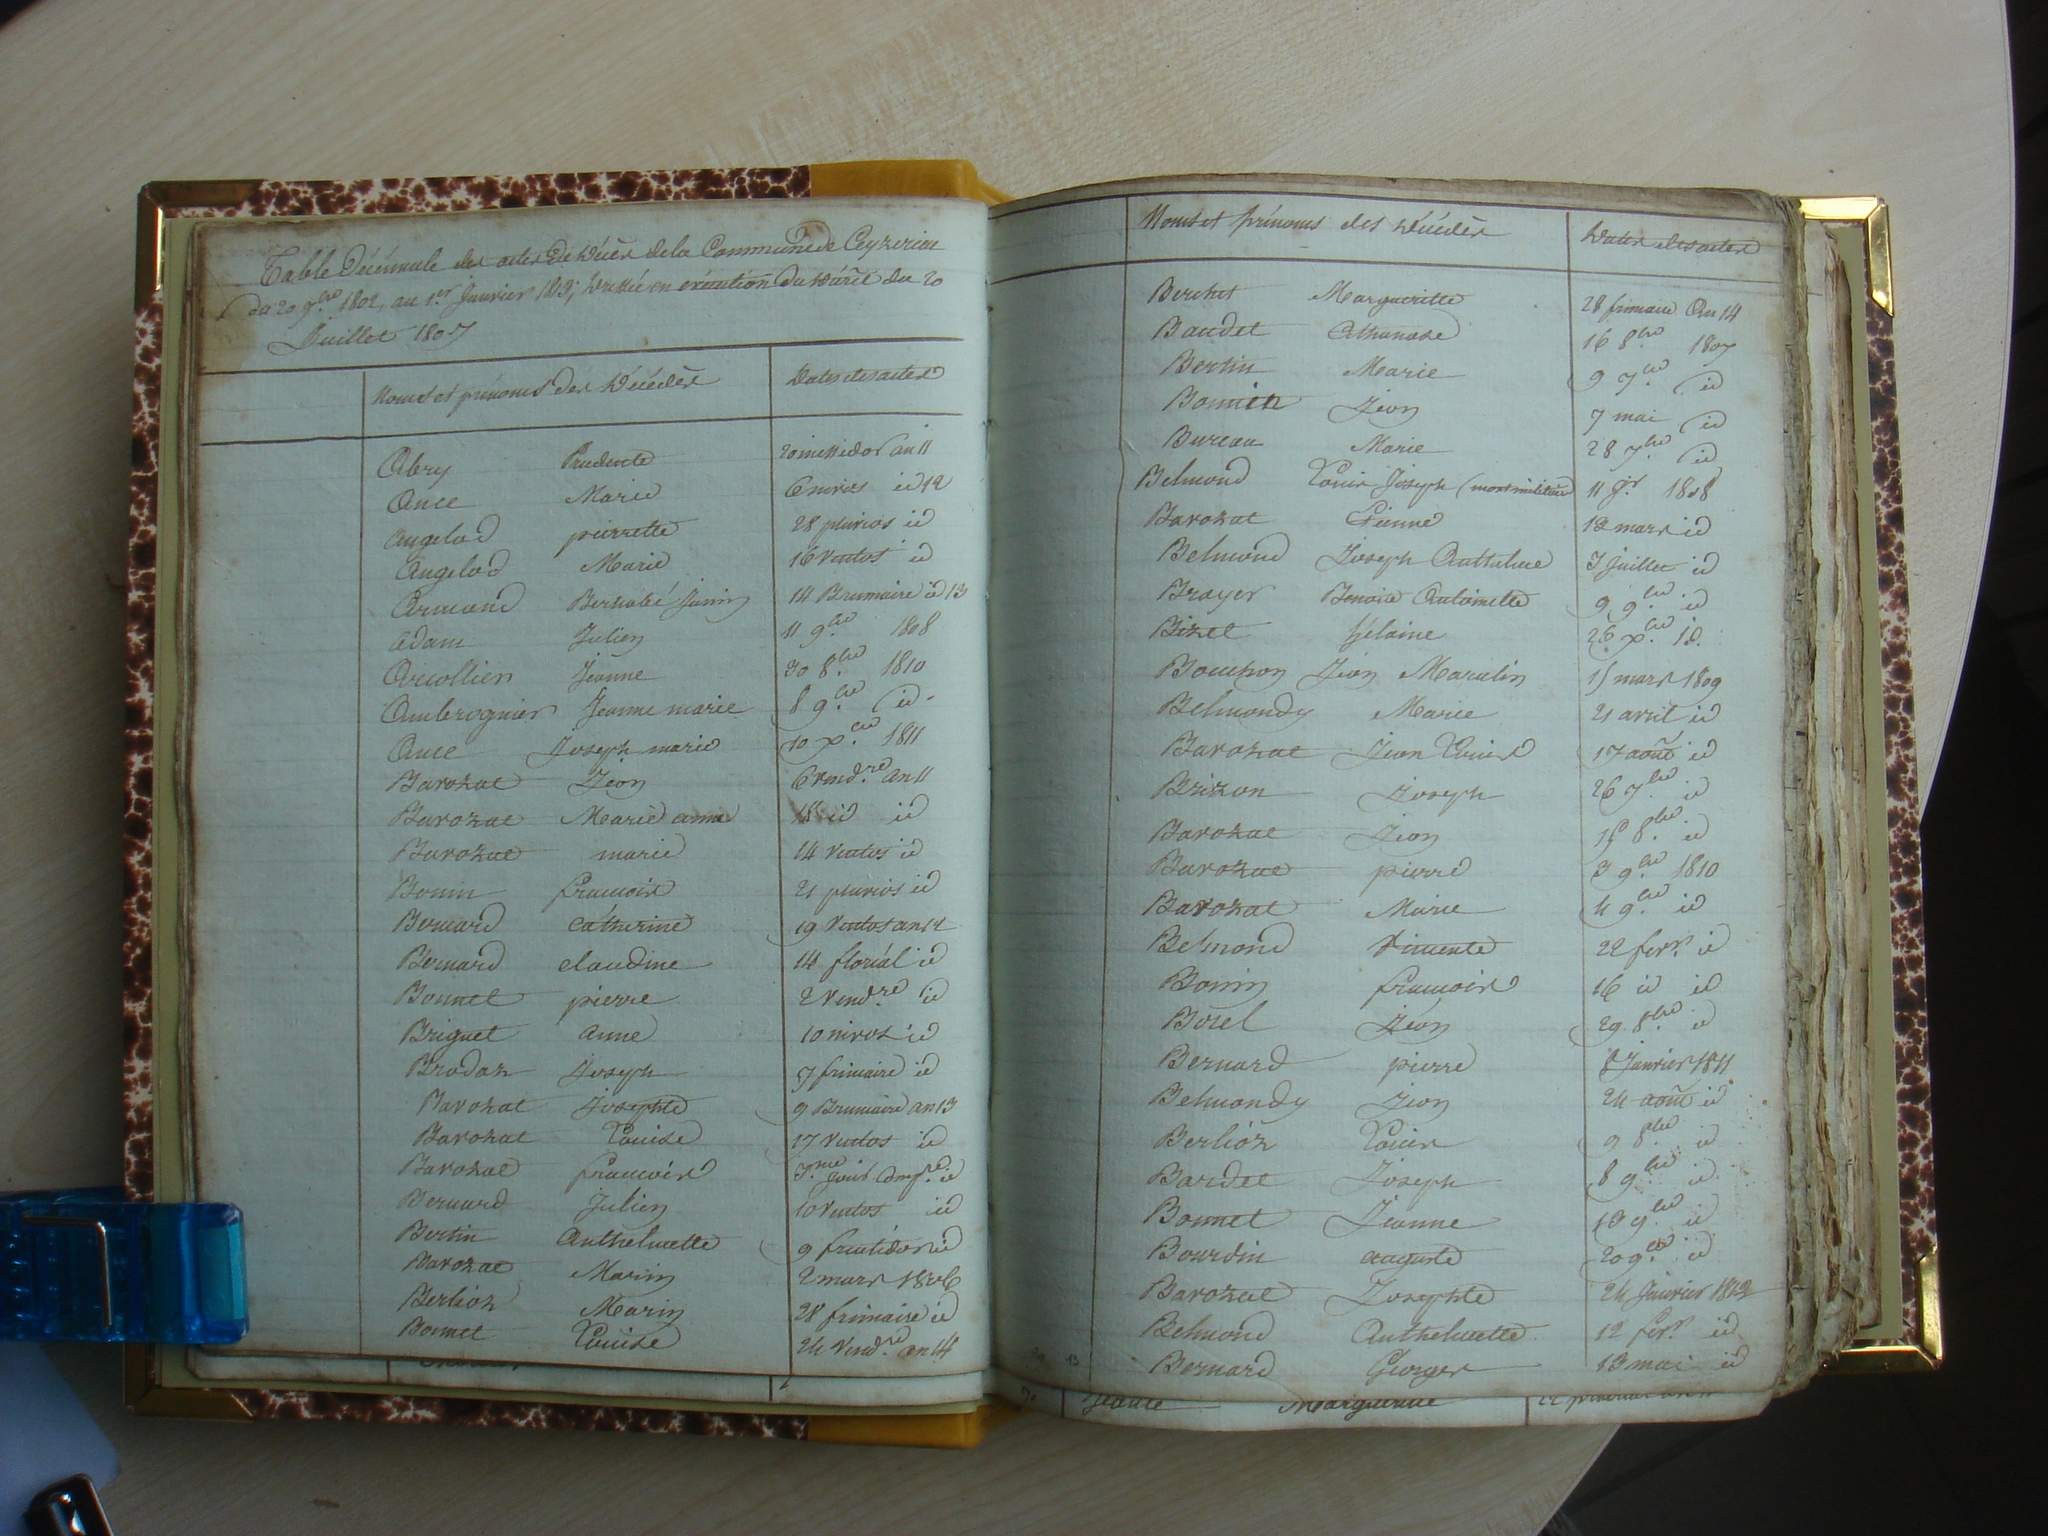 Table Décénnale des actes de Décès de la Commune de Ceyzerieu
du 20 7bre 1802, au 1er Janvier 1813; dressé en exécution du Décret du 20
Juillet 1807
Noms et prénoms des Décédés Dates des actes
Abry Prudente 20 messidor an 11
Ance Marie 6 nivos id 12
Angelod pierrette 28 pluvios id
Angelod Marie 16 Ventos id
Armand Bernabé Janin 14 Brumaire id 13
Adam Julien 11 9bre 1808
Arcollien Jeanne 30 8bre 1810
Ambrognier Jeanne marie 8 9bre id
Ance Joseph marie 10 Xbre 1811
Barozat Jean 6 vendre an 11
Barozat Marie anne 18 id id
Barozat marie 14 Ventos id
Bonin francois 21 pluvios id
Bernard catherine 19 Ventos an 12
Bernard claudine 14 floréal id
Bonnet pierre 2 Vendre id
Briguet anne 10 nivos id
Brodaz Joseph 7 frimaire id
Barozat Josephte 9 Brumaire an 13
Barozat Louise 17 Ventos id
Barozat francois 3me Jour Comp.re id
Bernard Julien 10 Ventos id
Bertin Anthelmette 9 fructidor id
Barozat Marin 2 mars 1806
Berlioz Marin 28 frimaire id
Bonnet Louise 24 Vendre an 14
Noms et prénoms des Décédés Dates des actes
Berthet Margueritte 28 frimaire An 14
Baudet Athanase 16 8bre 1807
Bertin Marie 9 7bre id
Bonnin Jean 7 mai id
Bureau Marie 28 7bre id
Belmond Louis Joseph (mort militaire 11 Jr 1808
Barozat Etienne 12 mars id
Belmond Joseph Anthelme 3 Juillet id
Brayer Benoite Antoinette 9 9bre id
Bizet hélaine 26 Xbre id.
Bouchon Jean Marcelin 15 mars 1809
Belmondy Marie 21 avril id
Barozat Jean Louis 17 aout id
Brizon Joseph 26 7bre id
Barozat Jean 18 8bre id
Barozat pierre 3 9bre 1810
Barozat Marie 4 9bre id
Belmond Vincente 22 fevr. id
Bonin francois 16 id id
Borel Jean 29 8bre id
Bernard pierre 8 Janvier 1811
Belmondy Jean 24 aout id
Berlioz Louis 9 8bre id
Bardet Joseph 8 9bre id
Bonnet Jeanne 13 9bre id
Bourdin auguste 20 9bre id
Barozat Josephte 24 Janvier 1812
Belmond Anthelmette 12 fevr. id
Bernard Georges 13 mai id